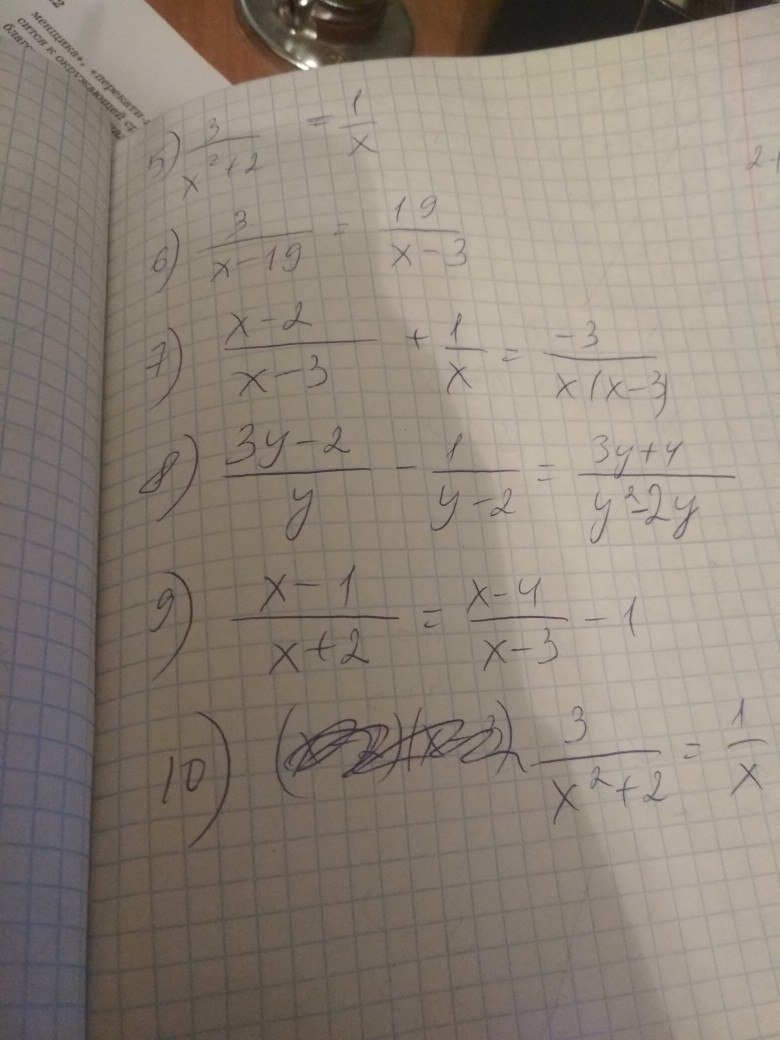 22
менщика», «перекати-
сится к окружающей ср
благо
5) 3/(x²+2) = 1/x
6) 3/(x-19) = 19/(x-3)
7) (x-2)/(x-3) + 1/x = -3/(x(x-3))
8) (3y-2)/y - 1/(y-2) = (3y+4)/(y²-2y)
9) (x-1)/(x+2) = (x-4)/(x-3) - 1
10) 3/(x²+2) = 1/x